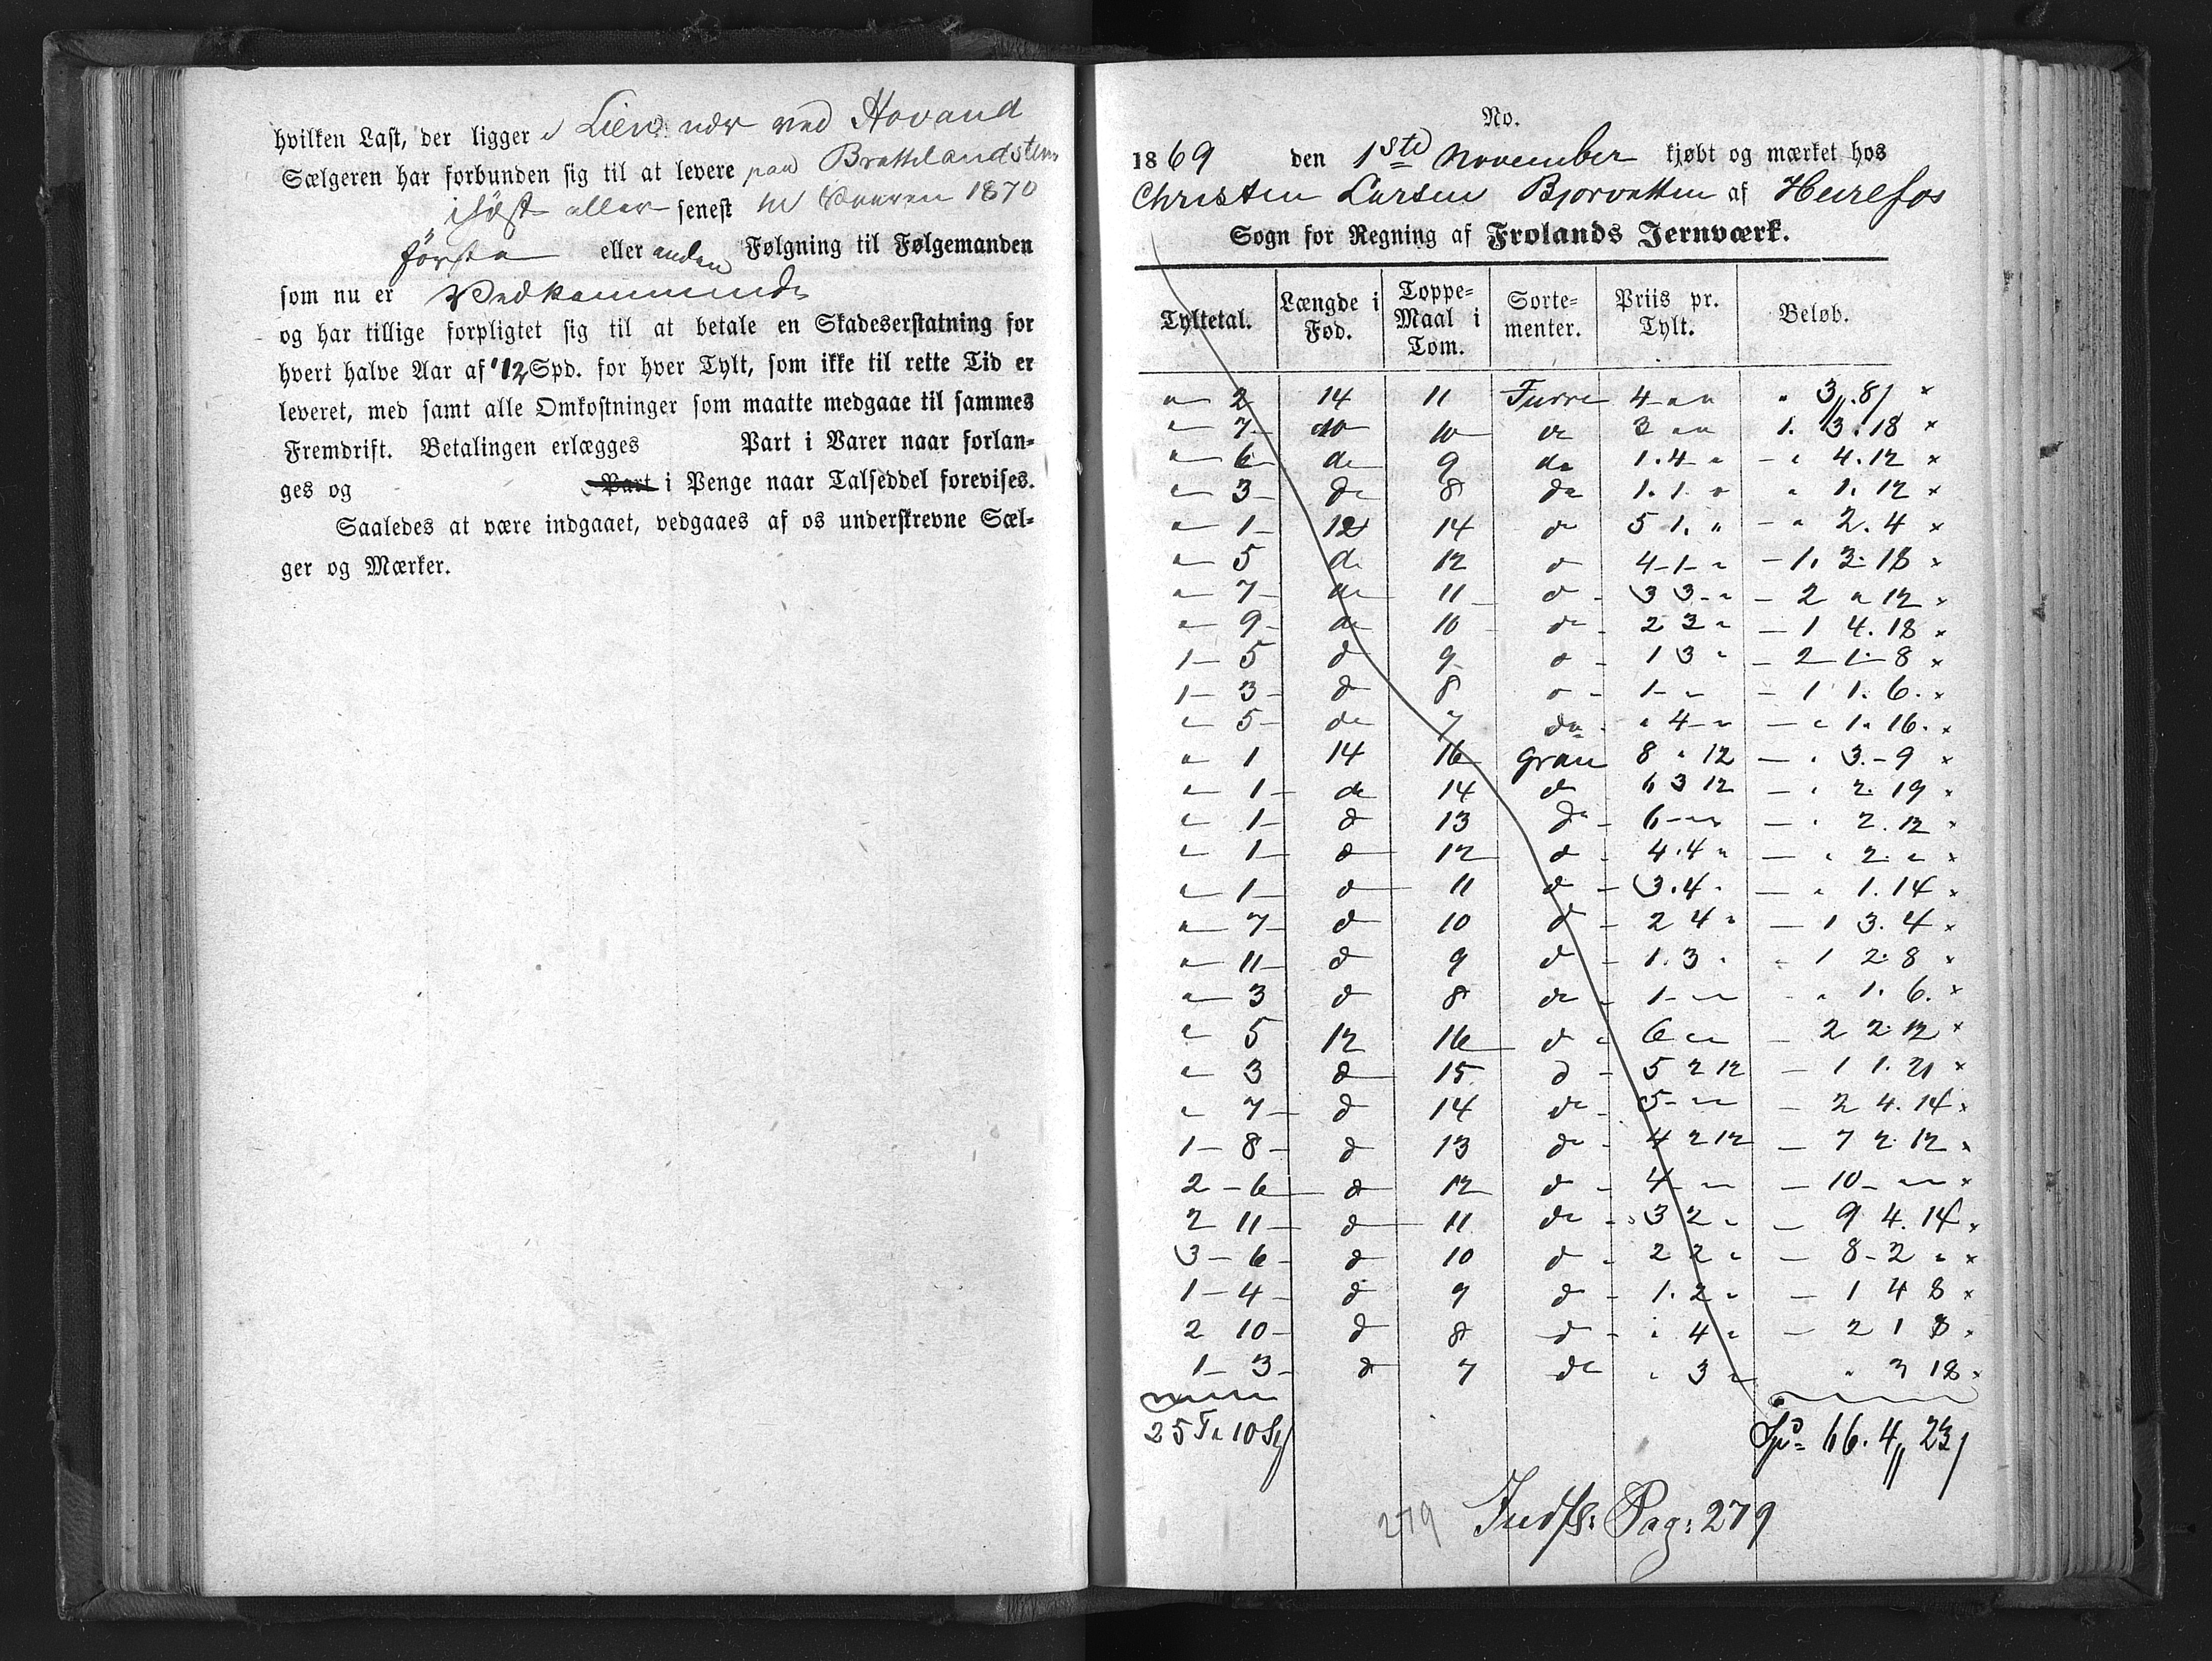 hvilken Last, der ligger i Lien nær ved Hovand
Sælgeren har forbunden sig til at levere paa Brattelandsteen
i Høst eller senest til Vaaren 1870
første eller anden Følgning til Følgemanden
som nu er Vedkommende
og har tillige forpligtet sig til at betale en Skadeserstatning for
hvert halve Aar af 12 Spd. for hver Tylt, som ikke til rette Tid er
leveret, med samt alle Omkostninger som maatte medgaae til sammes
Fremdrift. Betalingen erlægges Part i Varer naar forlan-
ges og Part i Penge naar Talseddel forevises.
Saaledes at være indgaaet, vedgaaes af os underskrevne Sæl-
ger og Mærker.
No.
1869 den 1ste November kjøbt og mærket hos
Christen Larsen Bjorvatten af Heirefos
Sogn for Regning af Frolands Jernværk.
Tyltetal. Længde i Fød. Toppe-Maal i Tom. Sorte-menter. Priis pr. Tylt. Beløb.
" 2 14 11 Furre 4 " " " 3. 8 ×
" 7 do 10 do 3 " " 1. 3. 18 ×
" 6 do 9 do 1. 4 " " 4. 12 ×
" 3 do 8 do 1. 1. " " 1. 12 ×
" 1 12 14 do 5 1. " " 2. 4 ×
" 5 do 12 do 4 1 " 1. 3. 18 ×
" 7 do 11 do 3 3 " 2 " 12 ×
" 9 do 10 do 2 3 " 1 4. 18 ×
1 5 do 9 do 1 3 " 2 1 8 ×
1 3 do 8 do 1 " " 1 1. 6. ×
" 5 do 7 do " 4 " " 1. 16. ×
" 1 14 16 Gran 8 " 12 " 3. 9 ×
" 1 do 14 do 6 3 12 " 2. 19 ×
" 1 do 13 do 6 " " " 2. 12 ×
" 1 do 12 do 4. 4 " " 2. " ×
" 1 do 11 do 3. 4. " 1. 14 ×
" 7 do 10 do 2 4 " 1 3. 4 ×
" 11 do 9 do 1. 3 " 1 2. 8 ×
" 3 do 8 do 1 " " " 1. 6. ×
" 5 12 16 do 6 " " 2 2. 12 ×
" 3 do 15 do 5 2 12 1 1. 21 ×
" 7 do 14 do 5 " " 2 4. 14 ×
1 8 do 13 do 4 2 12 7 2 12 ×
2 6 do 12 do 4 " " 10 " " ×
2 11 do 11 do 3 2 " 9 4. 14 ×
3 6 do 10 do 2 2 " 8 2 " ×
1 4 do 9 do 1. 2 " 1 4 8 ×
2 10 do 8 do " 4 " 2 1 8 ×
1 3 do 7 do " 3 " " 3 18 ×
25 T. 10 St Spd 66. 4 23
279 Indf: Pag: 279